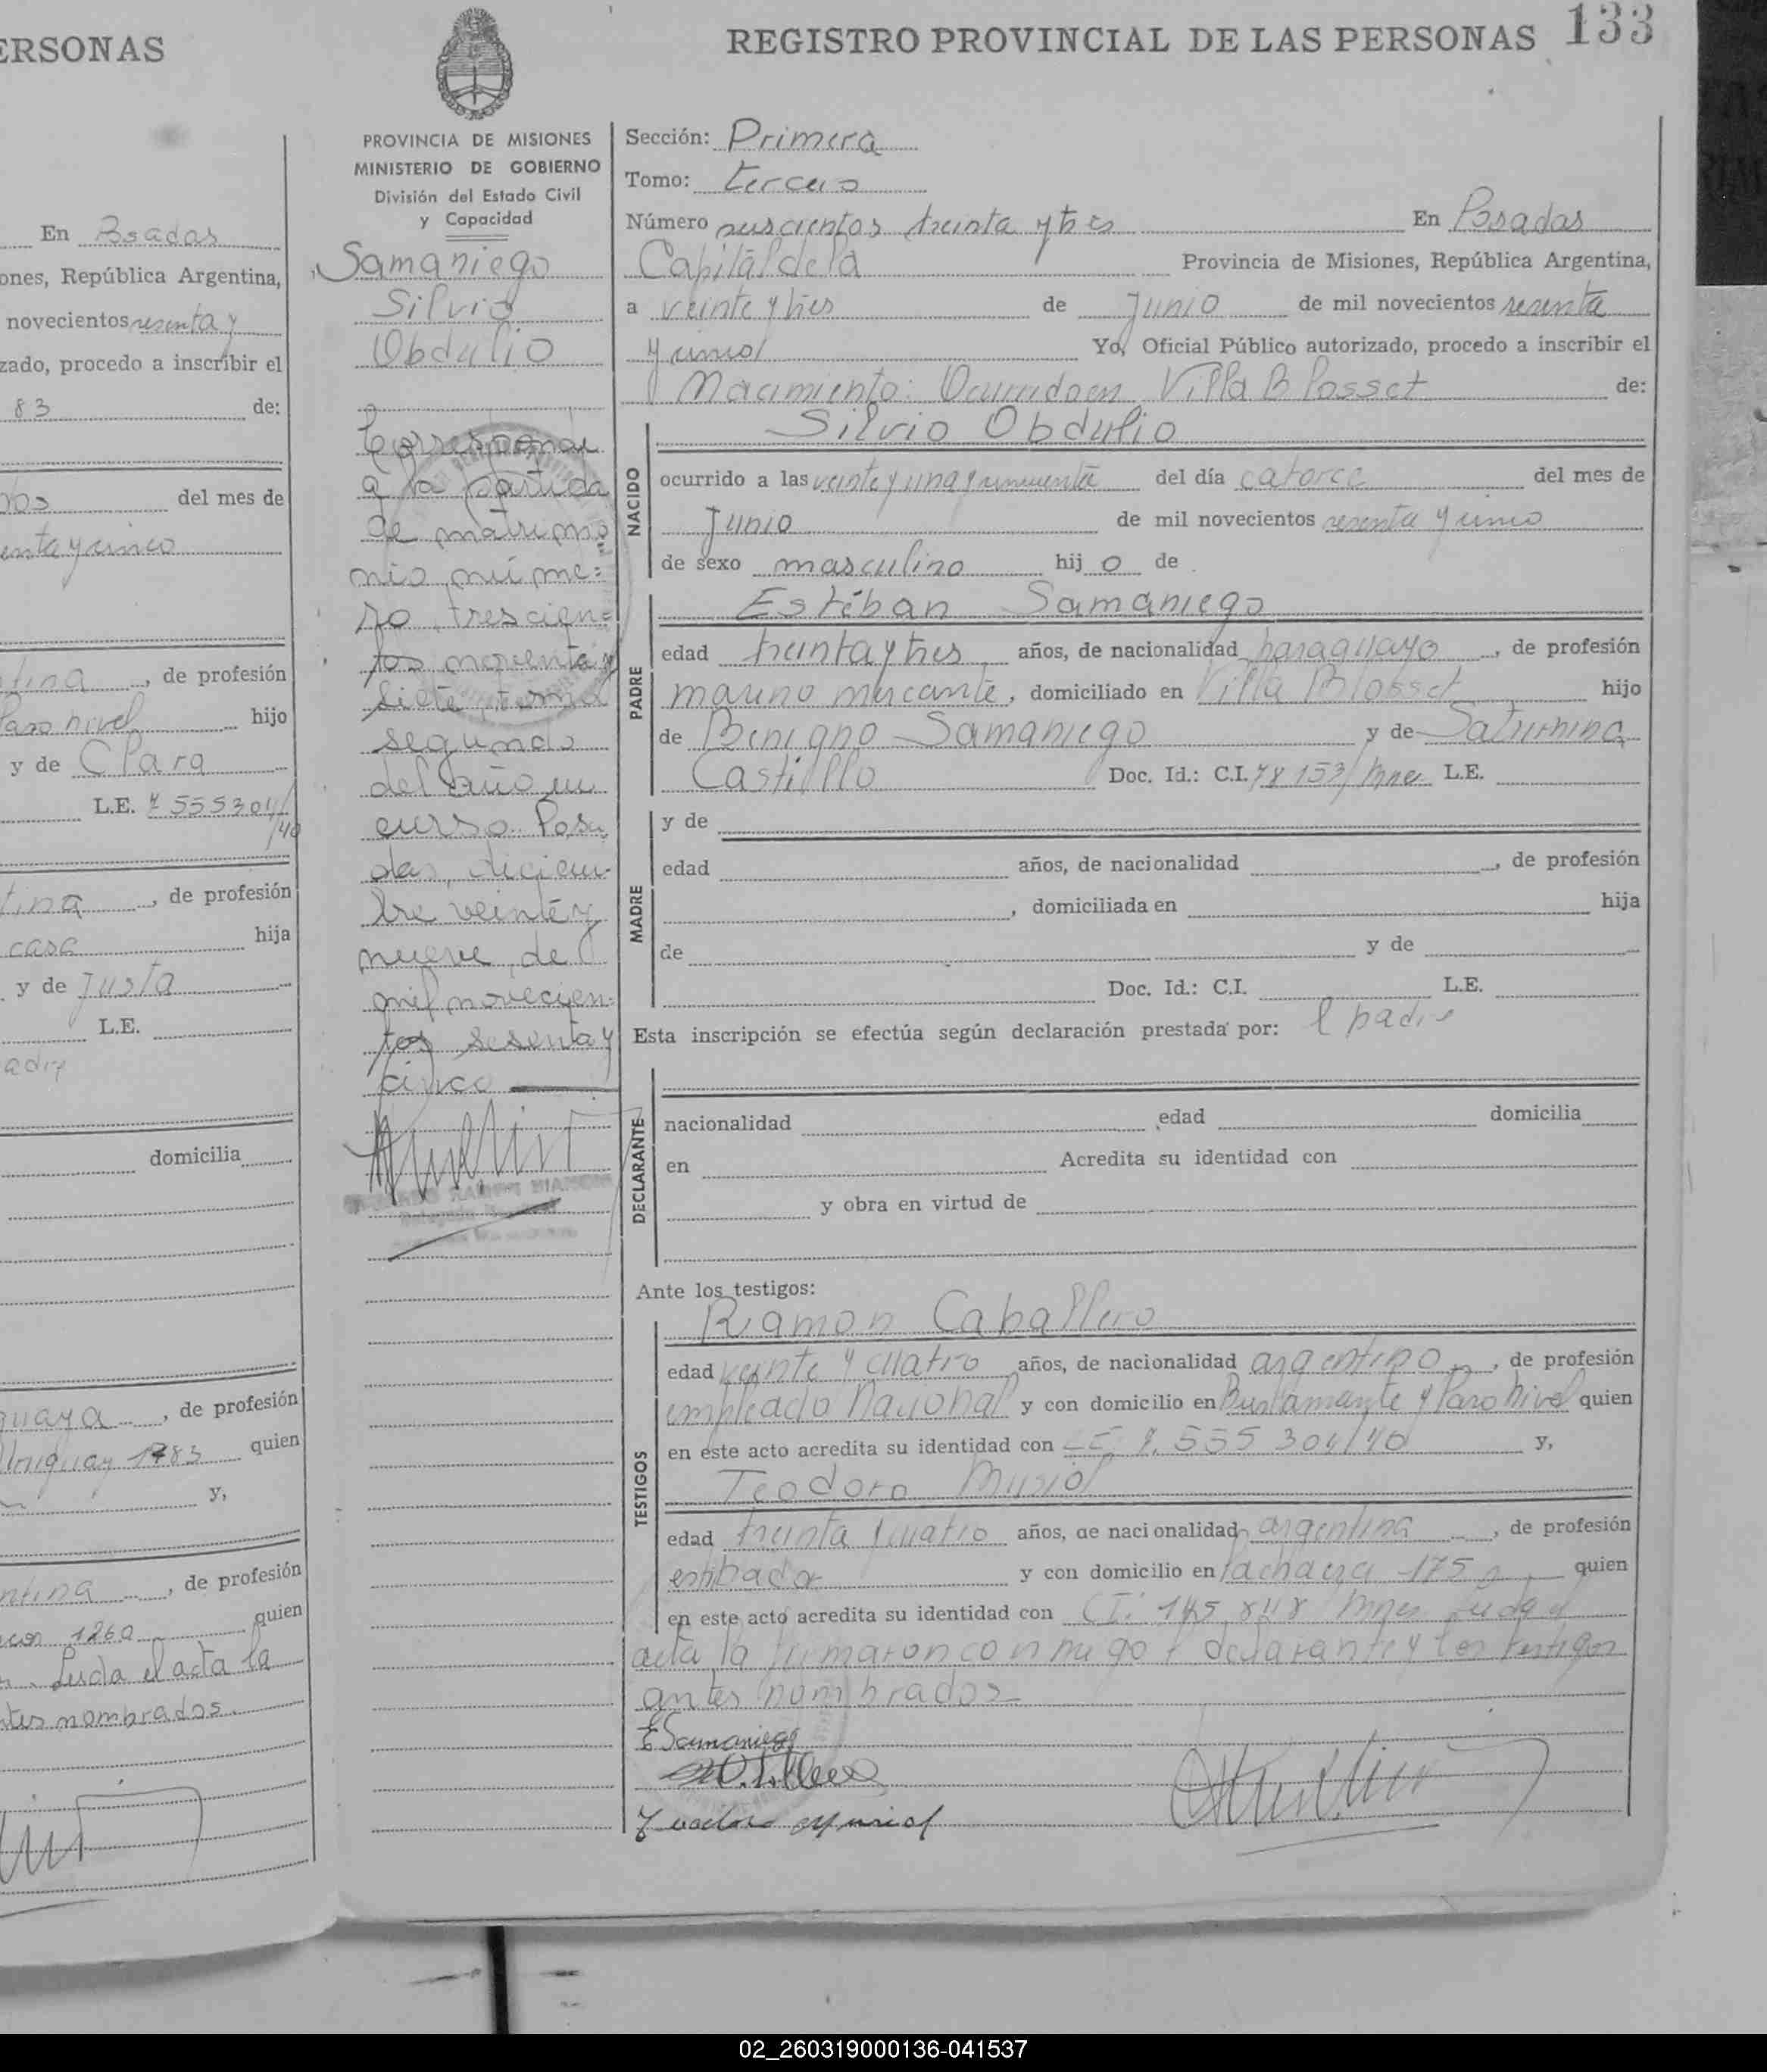 ERSONAS
En Posadas
ones, República Argentina,
novecientos sesenta y
zado, procedo a inscribir el
83 de:
del mes de
enta y cinco
tina, de profesión
Paso nivel hijo
y de Clara
L.E. 7 555304/
/40
tina, de profesión
casa hija
y de Justa
L.E.
adre
domicilia
guaya, de profesión
Uruguay 1783 quien
y,
ntina, de profesión
1260 quien
Leida el acta la
ntes nombrados.
PROVINCIA DE MISIONES
MINISTERIO DE GOBIERNO
División del Estado Civil
y Capacidad
Samaniego
Silvio
Obdulio
Corresponde
a la partida
de matrimo
nio núme=
ro trescien=
tos noventa y
siete tomo
segundo
del año en
curso. Posa
das, diciem-
bre veinte y
nueve de
mil novecien-
tos sesenta y
cinco
REGISTRO PROVINCIAL DE LAS PERSONAS 133
Sección: Primera
Tomo: tercero
Número seiscientos treinta y tres En Posadas
Capital de la Provincia de Misiones, República Argentina,
a veinte y tres de Junio de mil novecientos sesenta
y cinco Yo, Oficial Público autorizado, procedo a inscribir el
Nacimiento: Ocurrido en Villa Blosset de:
Silvio Obdulio
NACIDO
ocurrido a las veinte y una y cincuenta del día catorce del mes de
Junio de mil novecientos sesenta y cinco
de sexo masculino hij o de
Estéban Samaniego
PADRE
edad treinta y tres años, de nacionalidad paraguayo, de profesión
marino mercante, domiciliado en Villa Blosset hijo
de Benigno Samaniego y de Saturnina
Castillo Doc. Id.: C.I. 78 153/Mnes L.E.
MADRE
y de
edad años, de nacionalidad, de profesión
, domiciliada en hija
de y de
Doc. Id.: C.I. L.E.
Esta inscripción se efectúa según declaración prestada por: l padre
DECLARANTE
nacionalidad edad domicilia
en Acredita su identidad con
y obra en virtud de
Ante los testigos:
Ramon Caballero
TESTIGOS
edad veinte y cuatro años, de nacionalidad argentino, de profesión
empleado Nacional y con domicilio en Bustamante y Paso Nivel quien
en este acto acredita su identidad con LE 7. 555 304/40 y,
Teodoro Musiol
edad treinta y cuatro años, de nacionalidad argentina, de profesión
estibador y con domicilio en 175 quien
en este acto acredita su identidad con CI. 145 848 Mnes Leida el
acta la firmaron conmigo l declarante y los testigos
antes nombrados
E Samaniego
Teodoro Musiol
02_260319000136-041537